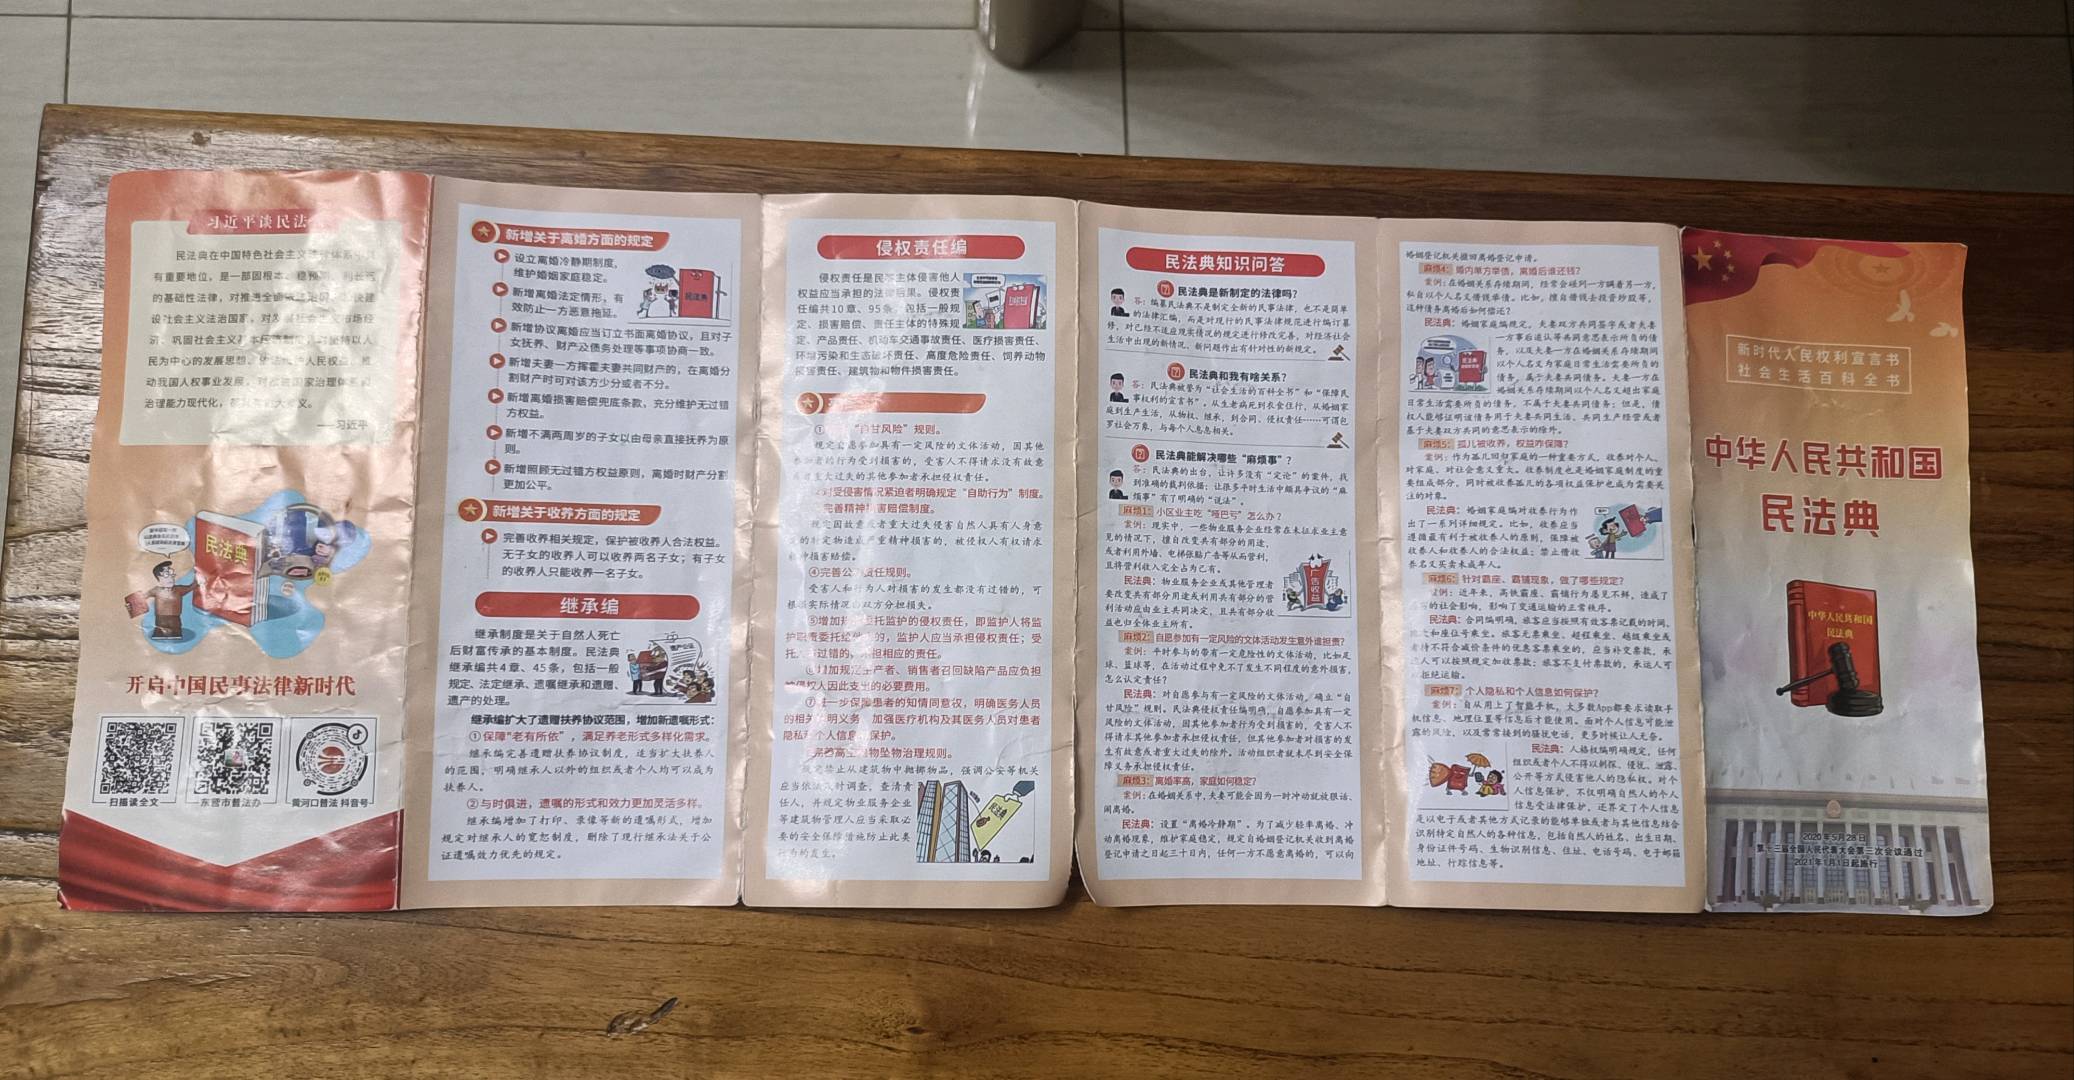 习近平谈民法
民法典在中国特色社会主义
有重要地位，是一部固根本、稳预期、利长远
的基础性法律，对推进全面依法治国
设社会主义法治国家，对发展社会主义市场经
济、巩固社会主义基本经济制度，对坚持以人
民为中心的发展思想、依法维护人民权益、推
动我国人权事业发展，对推进国家治理体系和
治理能力现代化，都具有重大意义。
——习近平
民法典
开启中国民事法律新时代
扫描读全文
东营市普法办
黄河口普法 抖音号
新增关于离婚方面的规定
设立离婚冷静期制度，
维护婚姻家庭稳定。
新增离婚法定情形，有
效防止一方恶意拖延。
新增协议离婚应当订立书面离婚协议，且对子
女抚养、财产及债务处理等事项协商一致。
新增夫妻一方挥霍夫妻共同财产的，在离婚分
割财产时可对该方少分或者不分。
新增离婚损害赔偿兜底条款，充分维护无过错
方权益。
新增不满两周岁的子女以由母亲直接抚养为原
则。
新增照顾无过错方权益原则，离婚时财产分割
更加公平。
民法典
新增关于收养方面的规定
完善收养相关规定，保护被收养人合法权益。
无子女的收养人可以收养两名子女；有子女
的收养人只能收养一名子女。
继承编
继承制度是关于自然人死亡
后财富传承的基本制度。民法典
继承编共4章、45条，包括一般
规定、法定继承、遗嘱继承和遗赠、
遗产的处理。
继承编扩大了遗赠扶养协议范围，增加新遗嘱形式：
①保障“老有所依”，满足养老形式多样化需求。
继承编完善遗赠扶养协议制度，适当扩大扶养人
的范围，明确继承人以外的组织或者个人均可以成为
扶养人。
②与时俱进，遗嘱的形式和效力更加灵活多样。
继承编增加了打印、录像等新的遗嘱形式，增加
规定对继承人的宽恕制度，删除了现行继承法关于公
证遗嘱效力优先的规定。
侵权责任编
侵权责任是民事主体侵害他人
权益应当承担的法律后果。侵权责
任编共10章、95条，包括一般规
定、损害赔偿、责任主体的特殊规
定、产品责任、机动车交通事故责任、医疗损害责任、
环境污染和生态破坏责任、高度危险责任、饲养动物
损害责任、建筑物和物件损害责任。
“自甘风险”规则。
规定自愿参加具有一定风险的文体活动，因其他
参加者的行为受到损害的，受害人不得请求没有故意
或者重大过失的其他参加者承担侵权责任。
②对受侵害情况紧迫者明确规定“自助行为”制度。
完善精神损害赔偿制度。
规定因故意或者重大过失侵害自然人具有人身意
义的特定物造成严重精神损害的，被侵权人有权请求
精神损害赔偿。
④完善公平责任规则。
受害人和行为人对损害的发生都没有过错的，可
根据实际情况由双方分担损失。
⑤增加规定委托监护的侵权责任，即监护人将监
护职责委托给他人的，监护人应当承担侵权责任；受
托人有过错的，承担相应的责任。
⑥增加规定生产者、销售者召回缺陷产品应负担
被侵权人因此支出的必要费用。
⑦进一步保障患者的知情同意权，明确医务人员
的相关说明义务，加强医疗机构及其医务人员对患者
隐私和个人信息的保护。
完善高空抛物坠物治理规则。
规定禁止从建筑物中抛掷物品，强调公安等机关
应当依法及时调查，查清责
任人，并规定物业服务企业
等建筑物管理人应当采取必
要的安全保障措施防止此类
行为的发生。
民法典
民法典知识问答
民法典是新制定的法律吗？
答：编纂民法典不是制定全新的民事法律，也不是简单
的法律汇编，而是对现行的民事法律规范进行编订纂
修，对已经不适应现实情况的规定进行修改完善，对经济社会
生活中出现的新情况、新问题作出有针对性的新规定。
民法典和我有啥关系？
答：民法典被誉为“社会生活的百科全书”和“保障民
事权利的宣言书”，从生老病死到衣食住行，从婚姻家
庭到生产生活，从物权、继承，到合同、侵权责任……可谓包
罗社会万象，与每个人息息相关。
民法典能解决哪些“麻烦事”？
答：民法典的出台，让许多没有“定论”的案件，找
到准确的裁判依据；让很多平时生活中颇具争议的“麻
烦事”有了明确的“说法”。
麻烦1：小区业主吃“哑巴亏”怎么办？
案例：现实中，一些物业服务企业经常在未征求业主意
见的情况下，擅自改变共有部分的用途，
或者利用外墙、电梯张贴广告等从而营利，
且将营利收入完全占为己有。
民法典：物业服务企业或其他管理者
要改变共有部分用途或利用共有部分的营
利活动应由业主共同决定，且共有部分收
益也归全体业主所有。
广告收益
麻烦2：自愿参加有一定风险的文体活动发生意外谁担责？
案例：平时参与的带有一定危险性的文体活动，比如足
球、篮球等，在活动过程中免不了发生不同程度的意外损害，
怎么认定责任？
民法典：对自愿参与有一定风险的文体活动，确立“自
甘风险”规则。民法典侵权责任编明确，自愿参加具有一定
风险的文体活动，因其他参加者行为受到损害的，受害人不
得请求其他参加者承担侵权责任，但其他参加者对损害的发
生有故意或者重大过失的除外。活动组织者就未尽到安全保
障义务承担侵权责任。
麻烦3：离婚率高，家庭如何稳定？
案例：在婚姻关系中，夫妻可能会因为一时冲动就放狠话、
闹离婚。
民法典：设置“离婚冷静期”。为了减少轻率离婚、冲
动离婚现象，维护家庭稳定，规定自婚姻登记机关收到离婚
登记申请之日起三十日内，任何一方不愿意离婚的，可以向
婚姻登记机关撤回离婚登记申请。
麻烦4：婚内单方举债，离婚后谁还钱？
案例：在婚姻关系存续期间，经常会碰到一方瞒着另一方，
私自以个人名义借钱举债。比如，擅自借钱去投资炒股等，
这种债务离婚后如何偿还？
民法典：婚姻家庭编规定，夫妻双方共同签字或者夫妻
一方事后追认等共同意思表示所负的债
务，以及夫妻一方在婚姻关系存续期间
以个人名义为家庭日常生活需要所负的
债务，属于夫妻共同债务。夫妻一方在
婚姻关系存续期间以个人名义超出家庭
日常生活需要所负的债务，不属于夫妻共同债务；但是，债
权人能够证明该债务用于夫妻共同生活、共同生产经营或者
基于夫妻双方共同的意思表示的除外。
麻烦5：孤儿被收养，权益咋保障？
案例：作为孤儿回归家庭的一种重要方式，收养对个人、
对家庭、对社会意义重大。收养制度也是婚姻家庭制度的重
要组成部分，同时被收养孤儿的各项权益保护也成为需要关
注的对象。
民法典：婚姻家庭编对收养行为作
出了一系列详细规定。比如，收养应当
遵循最有利于被收养人的原则，保障被
收养人和收养人的合法权益；禁止借收
养名义买卖未成年人。
麻烦6：针对霸座、霸铺现象，做了哪些规定？
案例：近年来，高铁霸座、霸铺行为屡见不鲜，造成了
的社会影响，影响了交通运输的正常秩序。
民法典：合同编明确，旅客应当按照有效客票记载的时间、
班次和座位号乘坐。旅客无票乘坐、超程乘坐、越级乘坐或
者持不符合减价条件的优惠客票乘坐的，应当补交票款，承
运人可以按照规定加收票款；旅客不支付票款的，承运人可
以拒绝运输。
麻烦7：个人隐私和个人信息如何保护？
案例：自从用上了智能手机，大多数App都要求读取手
机信息、地理位置等信息后才能使用。面对个人信息可能泄
露的风险，以及常常接到的骚扰电话，更多时候让人无奈。
民法典：人格权编明确规定，任何
组织或者个人不得以刺探、侵扰、泄露、
公开等方式侵害他人的隐私权。对个
人信息保护，不仅明确自然人的个人
信息受法律保护，还界定了个人信息
是以电子或者其他方式记录的能够单独或者与其他信息结合
识别特定自然人的各种信息，包括自然人的姓名、出生日期、
身份证件号码、生物识别信息、住址、电话号码、电子邮箱
地址、行踪信息等。
新时代人民权利宣言书
社会生活百科全书
中华人民共和国
民法典
中华人民共和国
民法典
2020年5月28日
第十三届全国人民代表大会第三次会议通过
2021年1月1日起施行